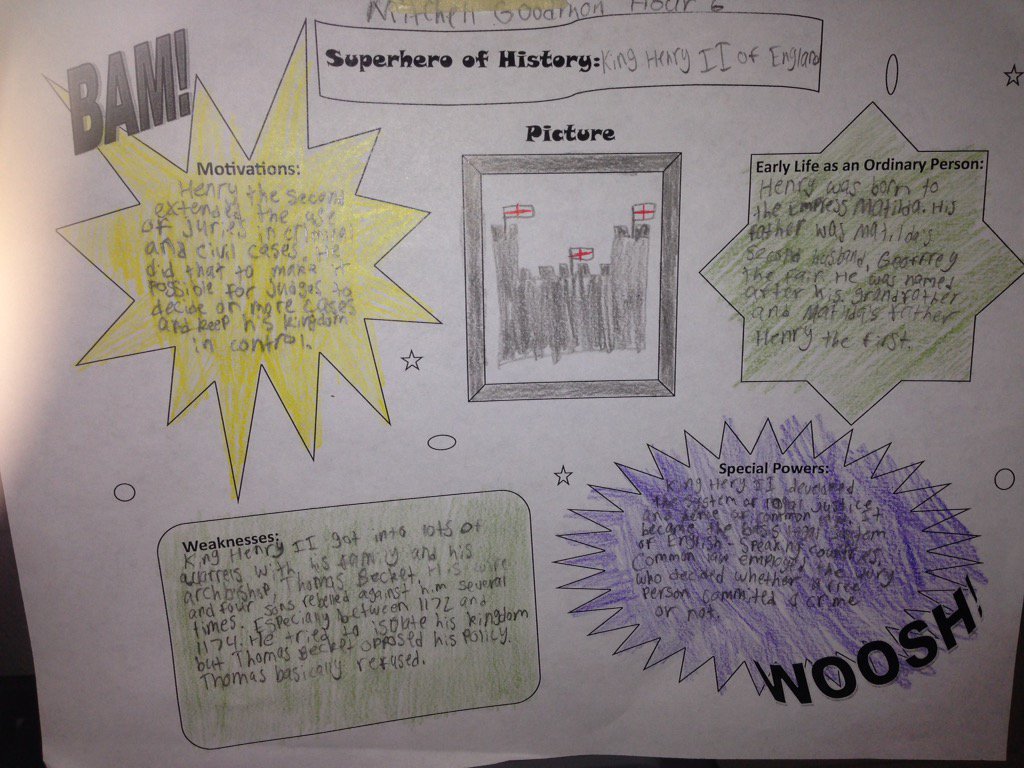 Mitchell Goodmon Hour 6
Superhero of History: King Henry II of England
BAM!
Picture
Motivations:
Henry the second
extended the use
of juries in criminal
and civil cases. He
did that to make it
possible for judges to
decide on more cases
and keep his kingdom
in control.
Early Life as an Ordinary Person:
Henry was born to
the Empress Matilda. His
father was Matilda's
second husband, Geoffrey
the fair. He was named
after his grandfather
and Matilda's father
Henry the first.
Weaknesses:
King Henry II got into lots of
quarrels with his family and his
archbishop, Thomas Becket. His wife
and four sons rebelled against him several
times. Especially between 1172 and
1174. He tried to isolate his kingdom
but Thomas Becket opposed his policy.
Thomas basically refused.
Special Powers:
King Hery II developed
the system of royal justice
and some of common law. It
became the basis legal system
of English speaking countries.
Common law employed the jury
who decided whether a free
person commited a crime
or not.
WOOSH!